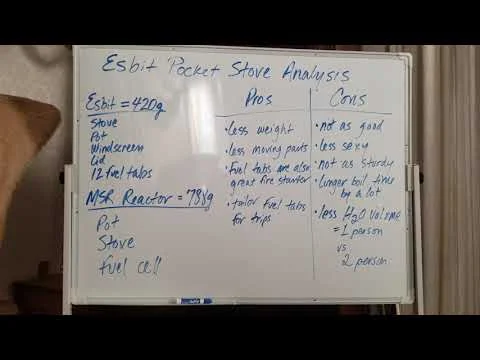 Esbit Pocket Stove Analysis
Esbit = 420g
Stove
Pot
Windscreen
Lid
12 fuel tabs
MSR Reactor = 798g
Pot
Stove
Fuel cell
Pros
• less weight
• less moving parts
• fuel tabs are also
great fire starter
• tailor fuel tabs
for trips
Cons
• not as good
• less sexy
• not as sturdy
• longer boil times
by a lot
• less H2O volume
= 1 person
vs
2 person